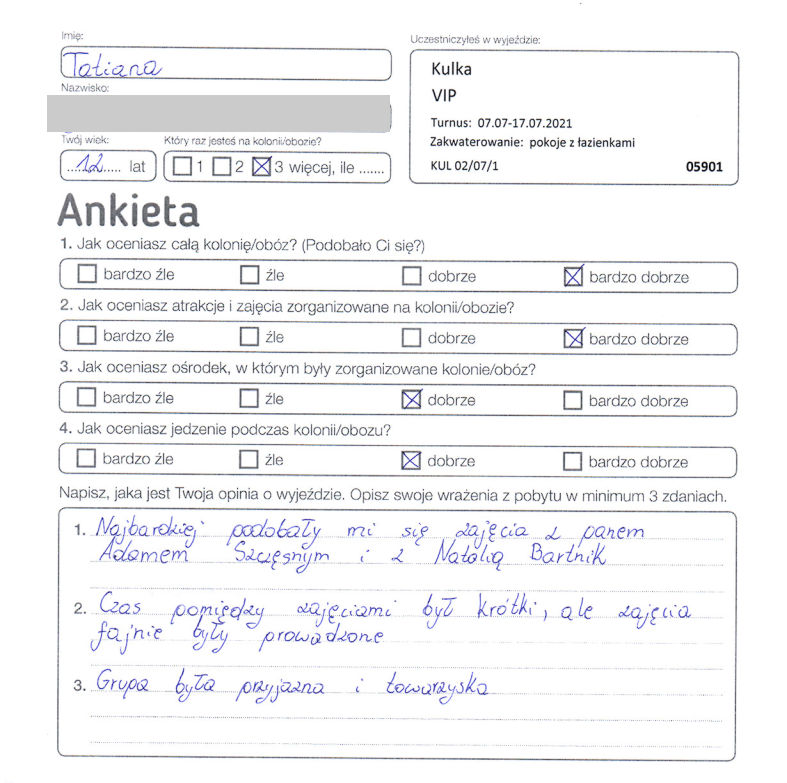 Imię:
Tatiana
Nazwisko:
Twój wiek:
12 lat
Który raz jesteś na kolonii/obozie?
1 2 3 więcej, ile .......
Uczestniczyłeś w wyjeździe:
Kulka
VIP
Turnus: 07.07-17.07.2021
Zakwaterowanie: pokoje z łazienkami
KUL 02/07/1 05901
Ankieta
1. Jak oceniasz całą kolonię/obóz? (Podobało Ci się?)
bardzo źle źle dobrze bardzo dobrze
2. Jak oceniasz atrakcje i zajęcia zorganizowane na kolonii/obozie?
bardzo źle źle dobrze bardzo dobrze
3. Jak oceniasz ośrodek, w którym były zorganizowane kolonie/obóz?
bardzo źle źle dobrze bardzo dobrze
4. Jak oceniasz jedzenie podczas kolonii/obozu?
bardzo źle źle dobrze bardzo dobrze
Napisz, jaka jest Twoja opinia o wyjeździe. Opisz swoje wrażenia z pobytu w minimum 3 zdaniach.
1. Najbardziej podobały mi się zajęcia z panem
Adamem Szczęsnym i z Natalią Bartnik
2. Czas pomiędzy zajęciami był krótki, ale zajęcia
fajnie były prowadzone
3. Grupa była przyjazna i towarzyska